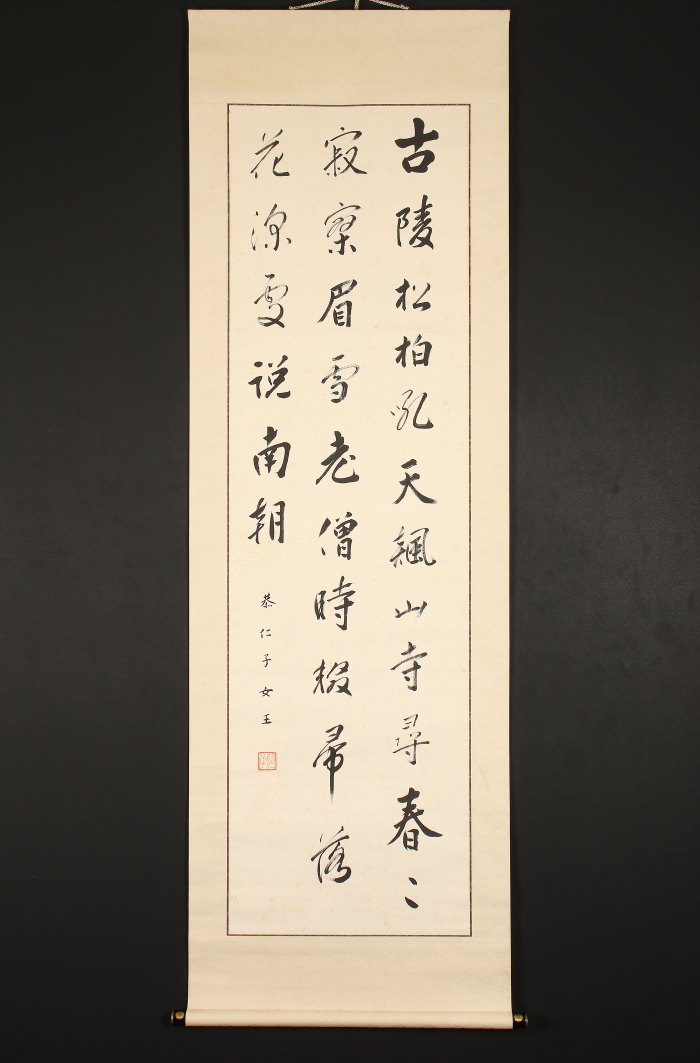 古陵松柏吼天飆山寺尋春〻
寂寥眉雪老僧時輟帚落
花深處説南朝
恭仁子女王